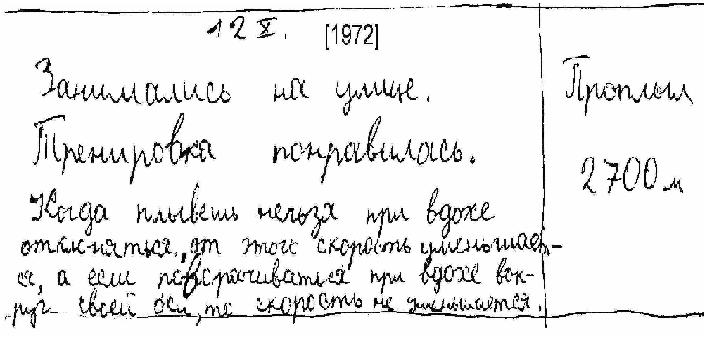 12 X. [1972]
Занимались на улице.
Тренировка понравилась.
Когда плывешь нельзя при вдохе
отклоняться, от этого скорость уменьшает-
ся, а если поворачиваться при вдохе вок-
руг своей оси, то скорость не уменьшается.
Проплыл
2700 м